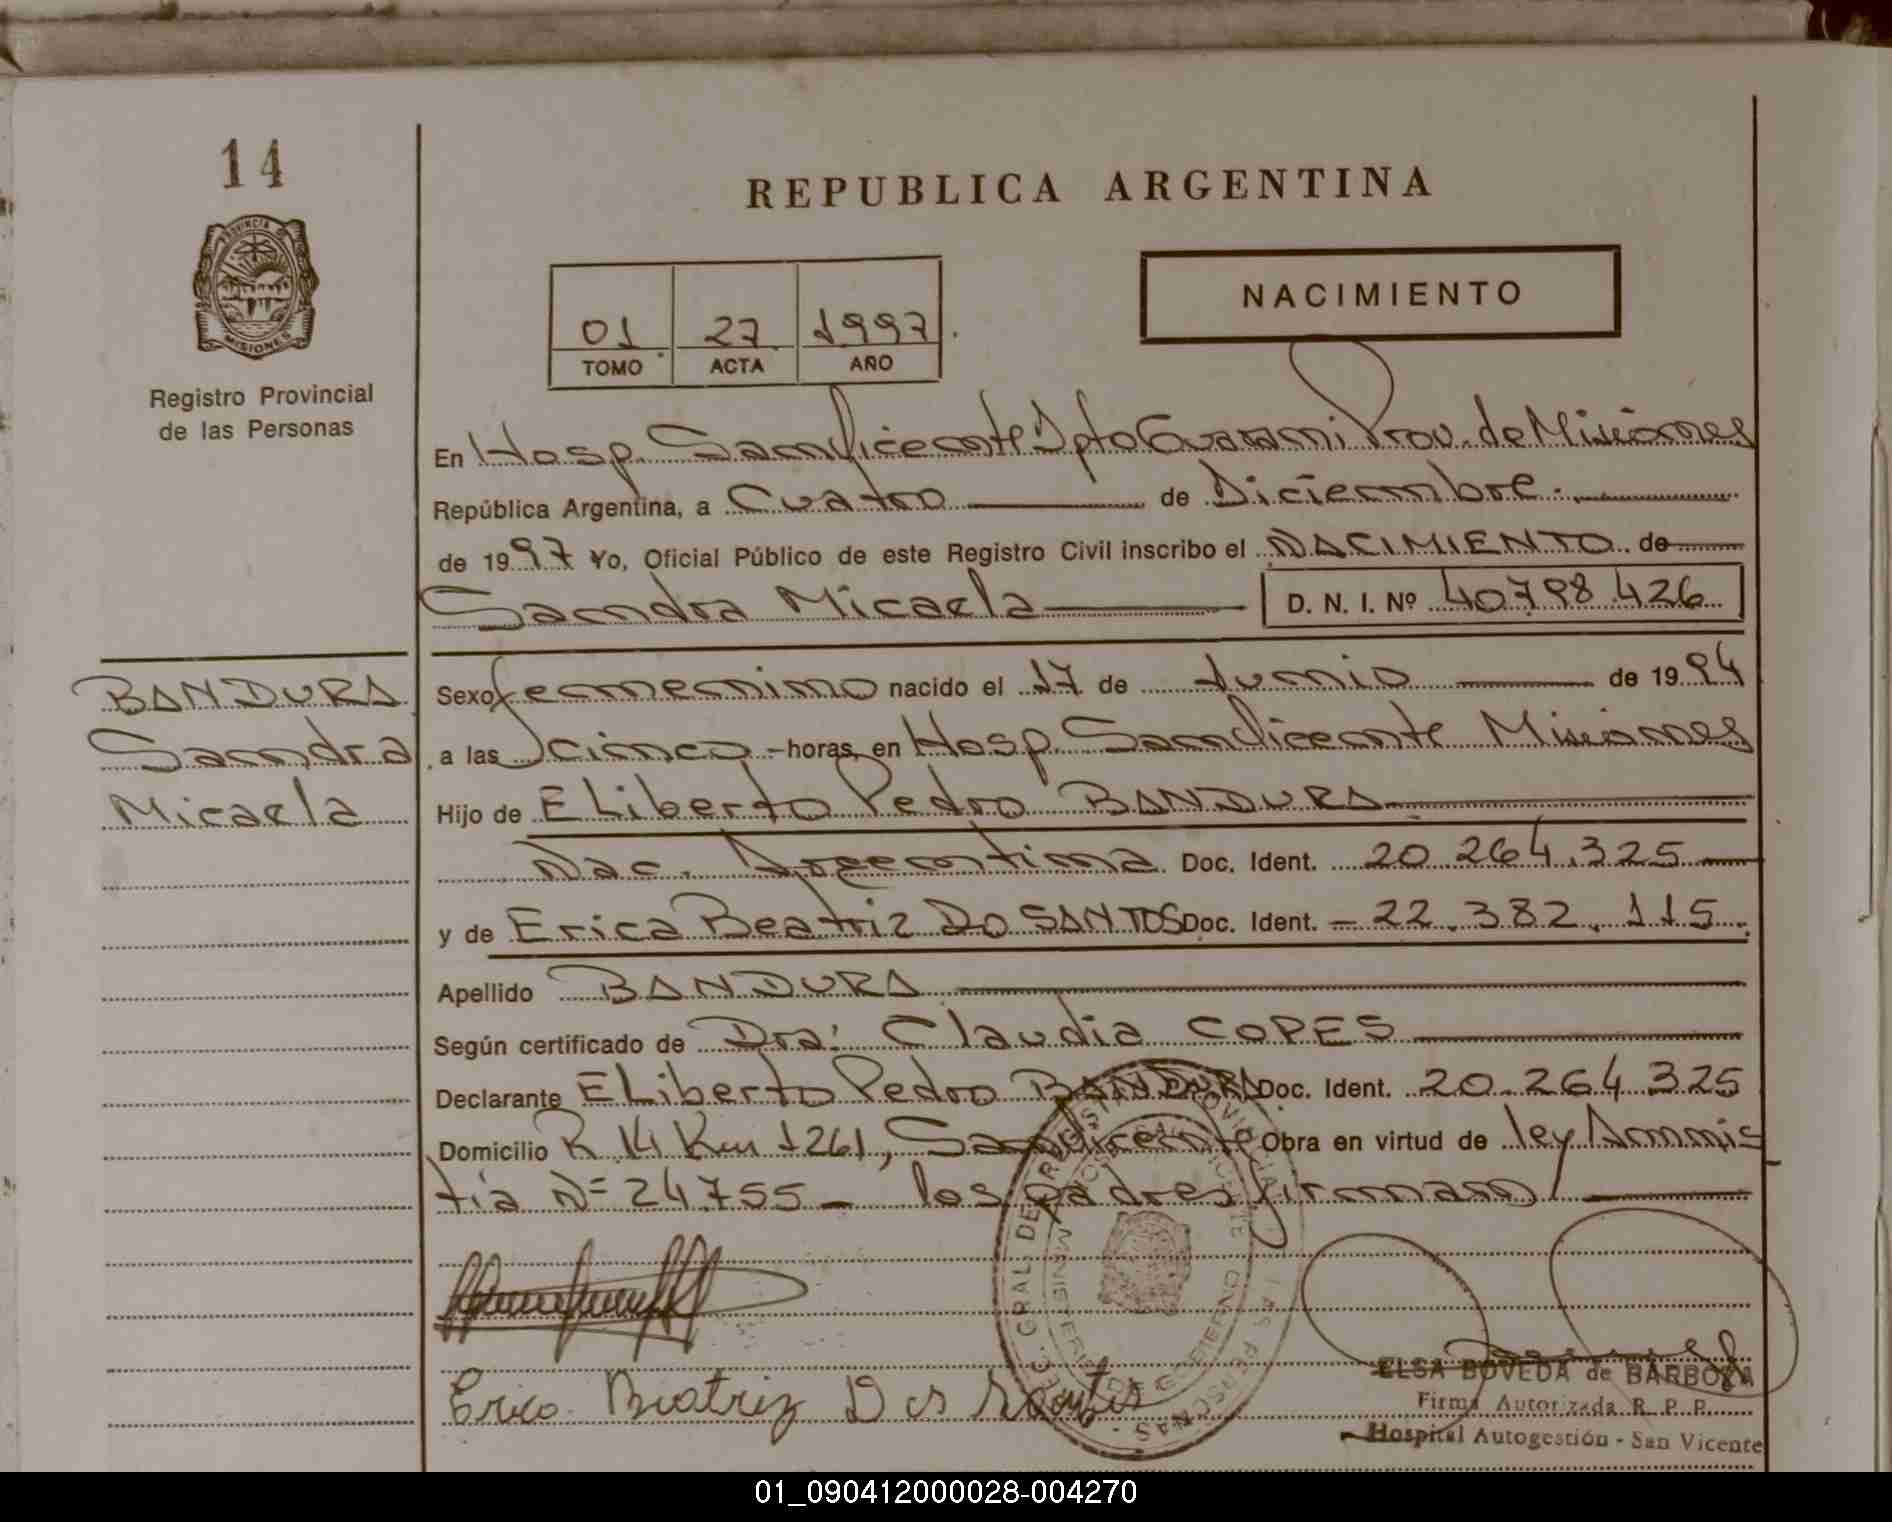 14
PROVINCIA DE
MISIONES
Registro Provincial
de las Personas
REPUBLICA ARGENTINA
NACIMIENTO
01 27 1997
TOMO ACTA AÑO
En Hosp. San Vicente Dpto Guarani Prov. de Misiones
República Argentina, a Cuatro de Diciembre.
de 1997 Yo, Oficial Público de este Registro Civil inscribo el NACIMIENTO de
Sandra Micaela D. N. I. Nº 40798.426
BANDURA
Sandra
Micaela
Sexo femenino nacido el 17 de Junio de 1994
a las cinco - horas, en Hosp. San Vicente Misiones
Hijo de ELiberto Pedro BANDURA
Nac. Argentina Doc. Ident. 20.264.325
y de Erica Beatriz DO SANTOS Doc. Ident. - 22.382.115
Apellido BANDURA
Según certificado de Dra: Claudia COPES
Declarante ELiberto Pedro BANDURA Doc. Ident. 20.264.325
Domicilio R 14 Km 1261, San Vicente Obra en virtud de ley Amnis
tia Nº 24.755 - los padres firman
Erica Beatriz Dos Santos
ELSA BOVEDA de BARBOZA
Firma Autorizada R. P. P.
Hospital Autogestión - San Vicente
01_090412000028-004270